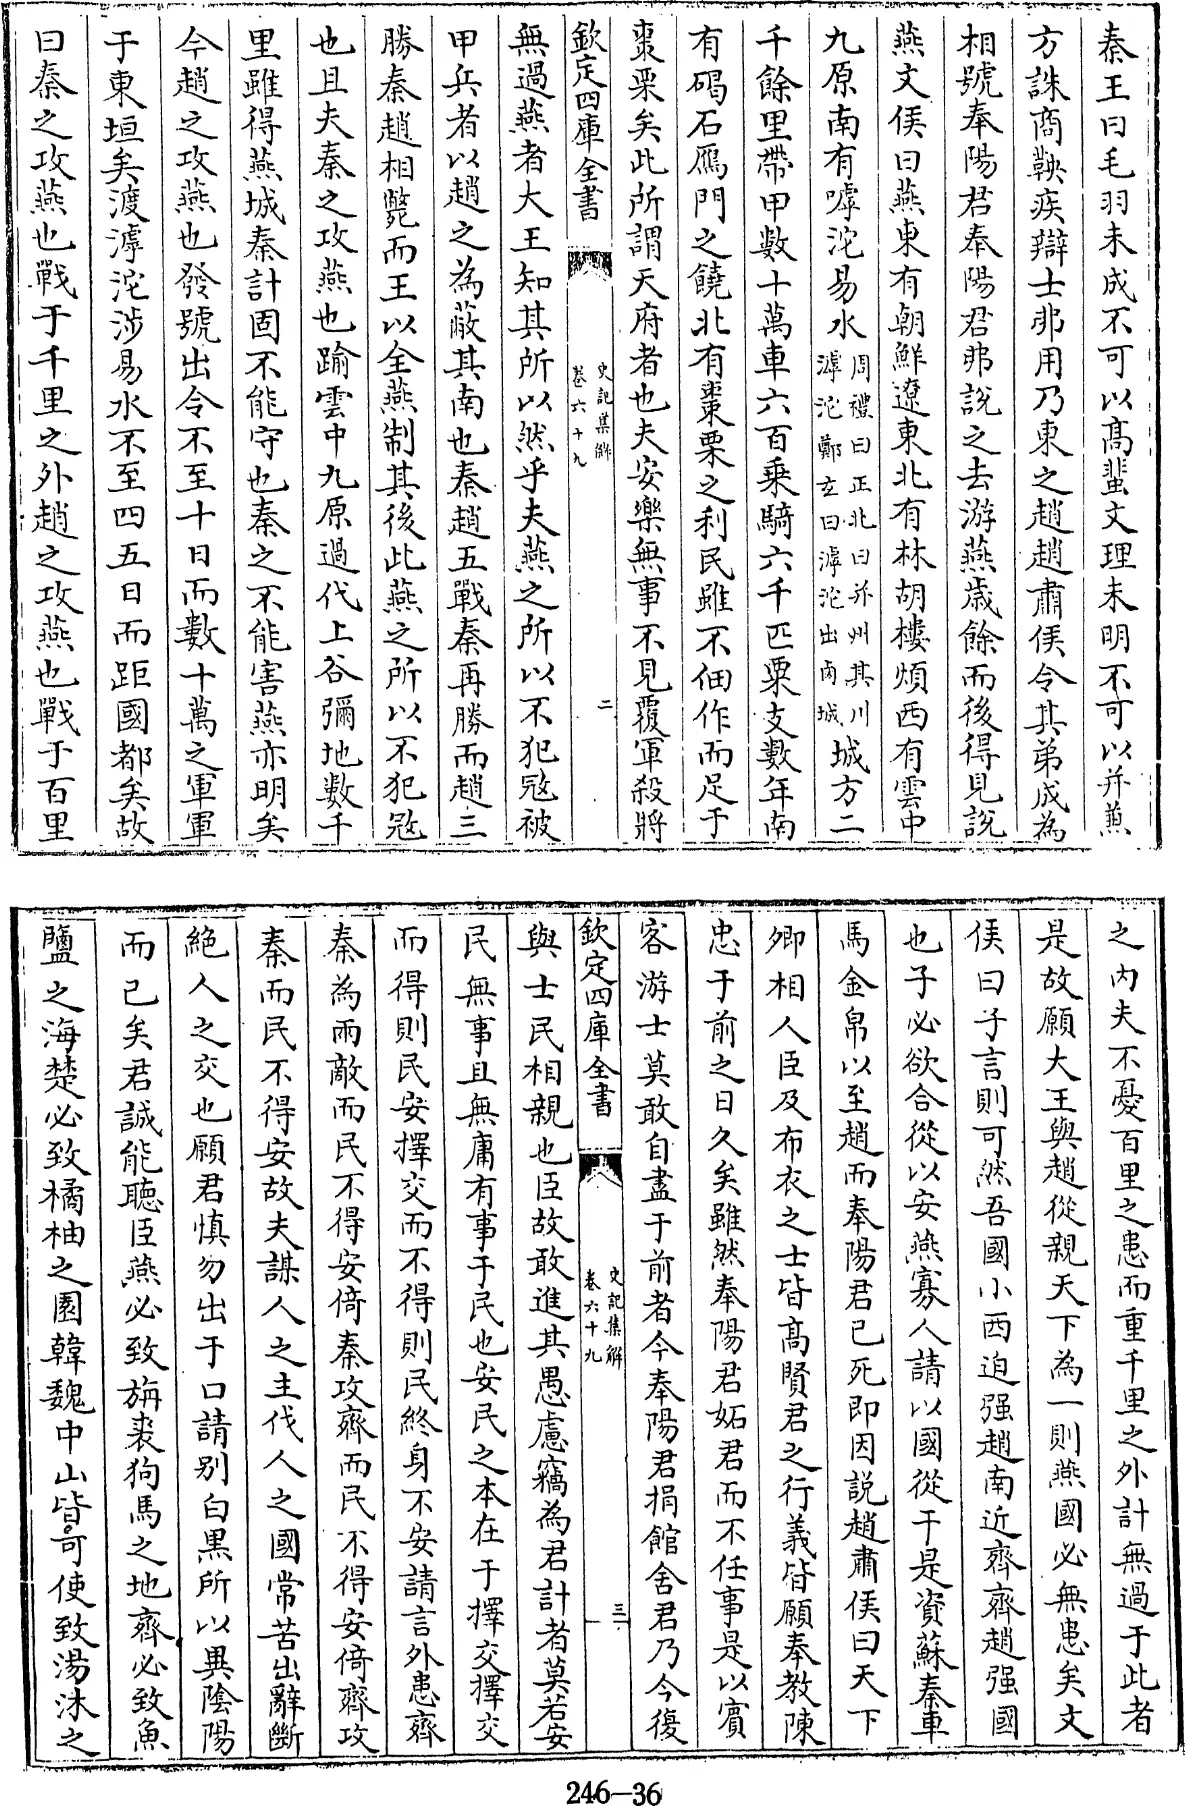 秦王曰毛羽未成不可以髙蜚文理未明不可以并兼
方誅商鞅疾辯士弗用乃東之趙趙肅侯令其弟成為
相號奉陽君奉陽君弗說之去游燕歳餘而後得見說
燕文侯曰燕東有朝鮮遼東北有林胡樓煩西有雲中
九原南有嘑沱易水周禮曰正北曰并州其川滹沱鄭玄曰滹沱出鹵城城方二
千餘里帶甲數十萬車六百乘騎六千匹粟支數年南
有碣石鴈門之饒北有棗栗之利民雖不佃作而足于
棗栗矣此所謂天府者也夫安樂無事不見覆軍殺將
欽定四庫全書
史記集解
卷六十九
二
無過燕者大王知其所以然乎夫燕之所以不犯冦被
甲兵者以趙之為蔽其南也秦趙五戰秦再勝而趙三
勝秦趙相斃而王以全燕制其後此燕之所以不犯冦
也且夫秦之攻燕也踰雲中九原過代上谷彌地數千
里雖得燕城秦計固不能守也秦之不能害燕亦明矣
今趙之攻燕也發號出令不至十日而數十萬之軍軍
于東垣矣渡滹沱涉易水不至四五日而距國都矣故
曰秦之攻燕也戰于千里之外趙之攻燕也戰于百里
之内夫不憂百里之患而重千里之外計無過于此者
是故願大王與趙從親天下為一則燕國必無患矣文
侯曰子言則可然吾國小西迫强趙南近齊齊趙强國
也子必欲合從以安燕寡人請以國從于是資蘇秦車
馬金帛以至趙而奉陽君已死即因說趙肅侯曰天下
卿相人臣及布衣之士皆髙賢君之行義皆願奉教陳
忠于前之日久矣雖然奉陽君妬君而不任事是以賓
客游士莫敢自盡于前者今奉陽君捐館舍君乃今復
欽定四庫全書
史記集解
卷六十九
三
與士民相親也臣故敢進其愚慮竊為君計者莫若安
民無事且無庸有事于民也安民之本在于擇交擇交
而得則民安擇交而不得則民終身不安請言外患齊
秦為兩敵而民不得安倚秦攻齊而民不得安倚齊攻
秦而民不得安故夫謀人之主伐人之國常苦出辭斷
絶人之交也願君慎勿出于口請别白黒所以異陰陽
而已矣君誠能聽臣燕必致旃裘狗馬之地齊必致魚
鹽之海楚必致橘柚之園韓魏中山皆可使致湯沐之
246-36